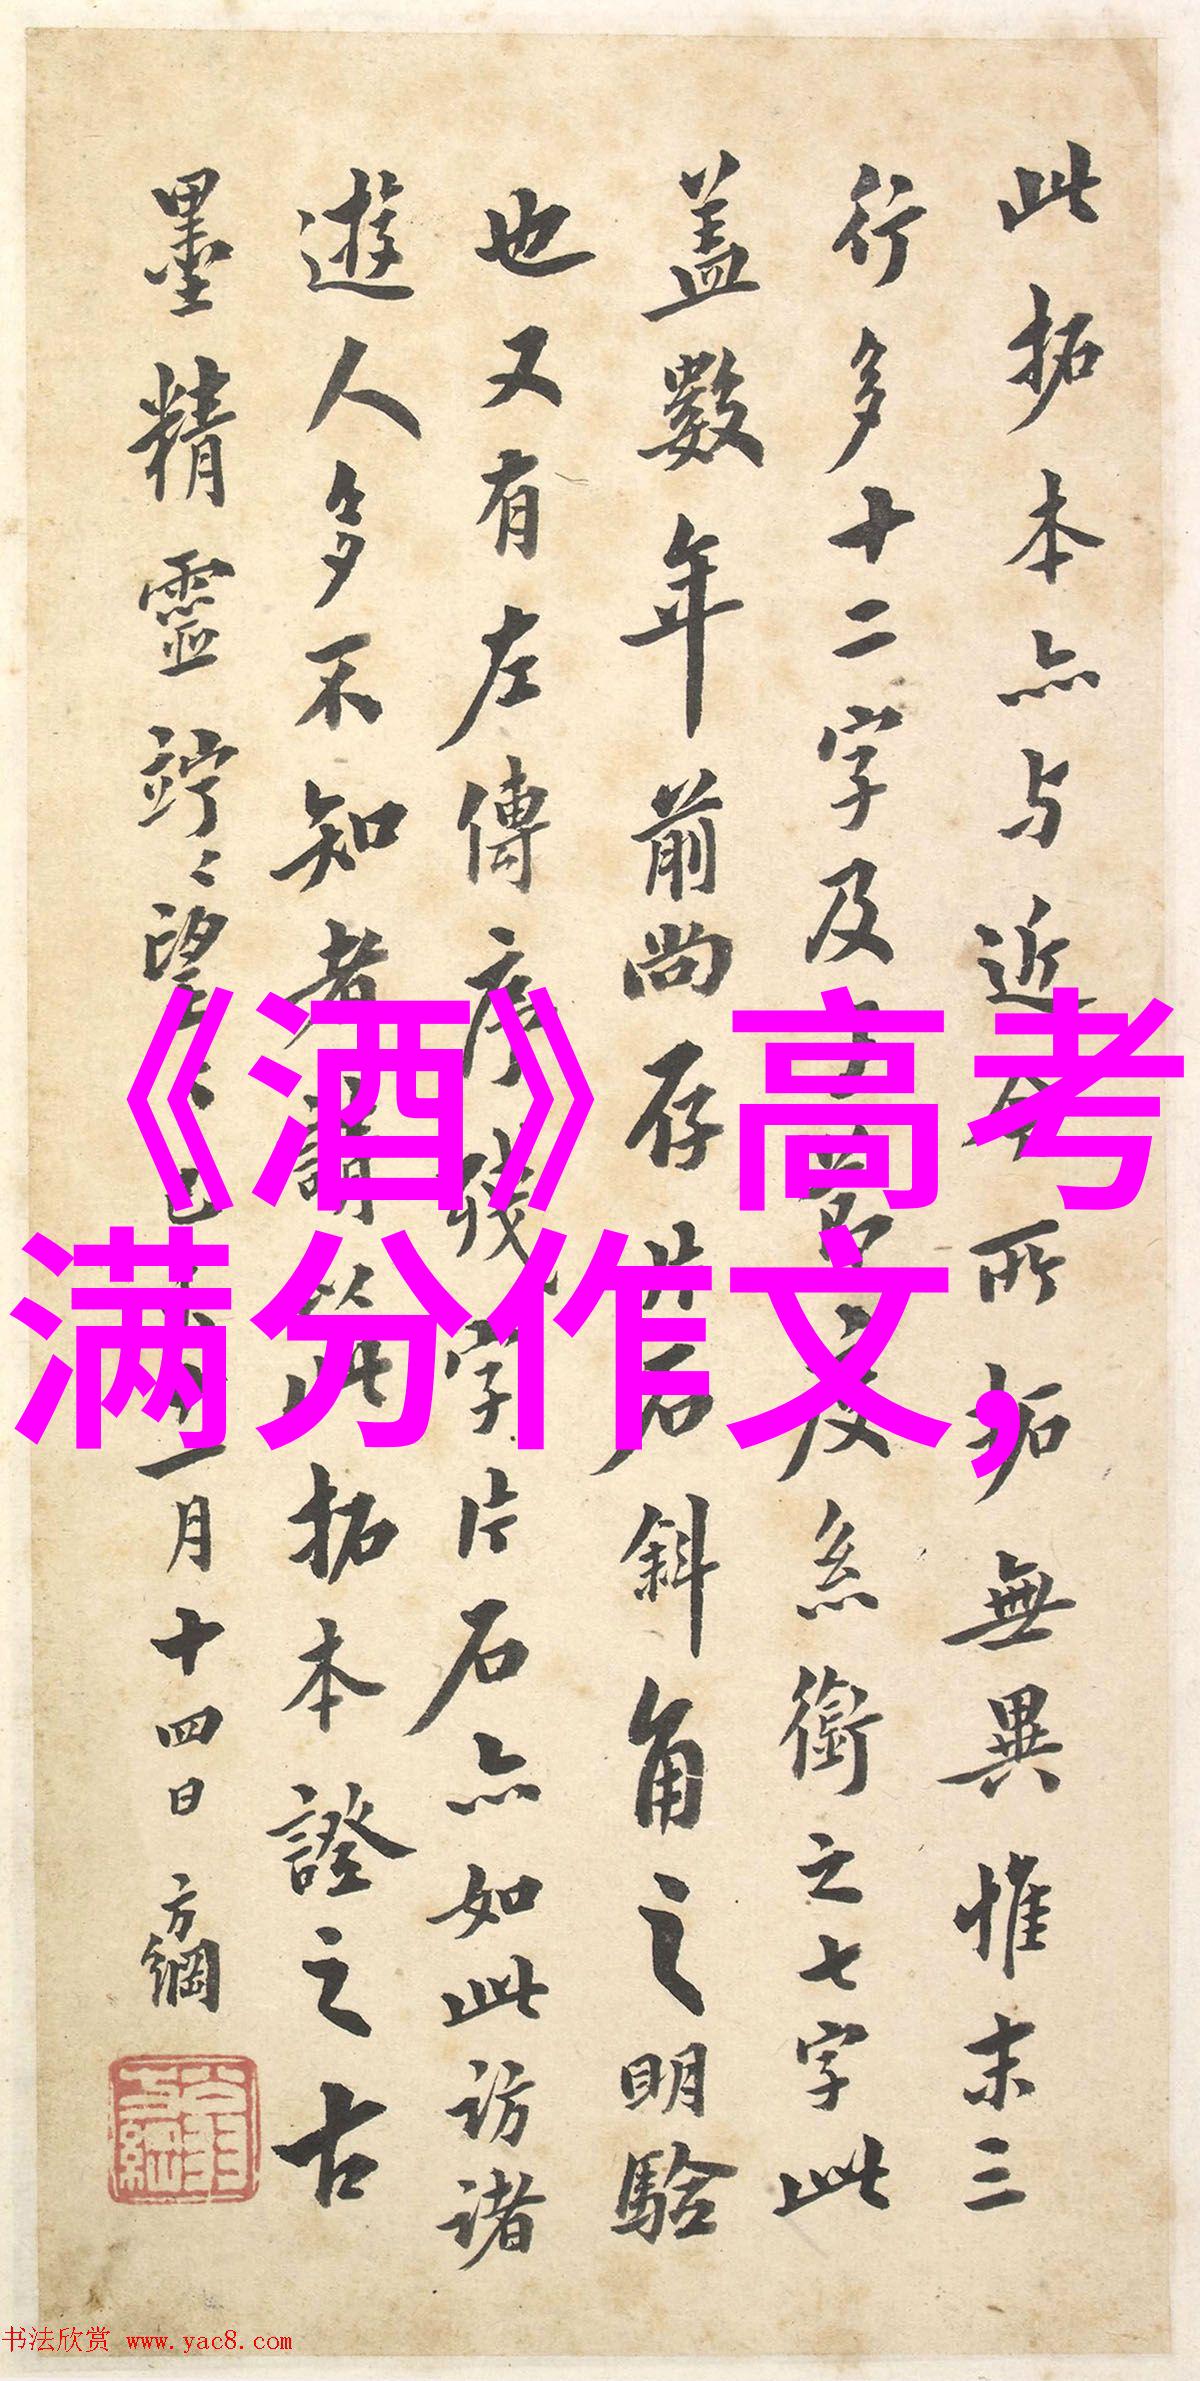 此拓本亦与近今所拓無異惟末三
行多十二字及
糸銜之七字此
蓋數年前尚存
石斜角之明驗
也又有左傳序殘字片石亦如此访诸
遊人多不知者
此拓本證之古
墨精靈竚〻望
一月十四日 方綱
《酒》高考
满分作文,
书法欣赏 www.yac8.com